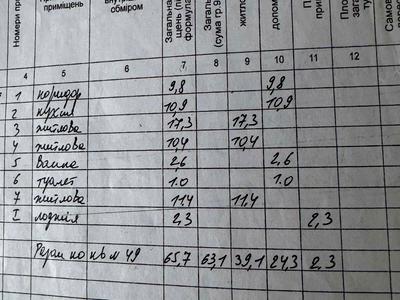 Номери при
приміщень
внутр
обміром
Загальна
щень (п
формула
Загаль
(сума гр.9
житло
допом
П
примі
Пло
зага
ту
Самов
4 5 6 7 8 9 10 11 12
1 коридор 9,8 9,8
2 кухня 10,9 10,9
3 житлова 17,3 17,3
4 житлова 10,4 10,4
5 ванна 2,6 2,6
6 туалет 1.0 1.0
7 житлова 11.4 11.4
I лоджія 2,3 2,3
Разом по кв № 49 65,7 63,1 39,1 24,3 2,3